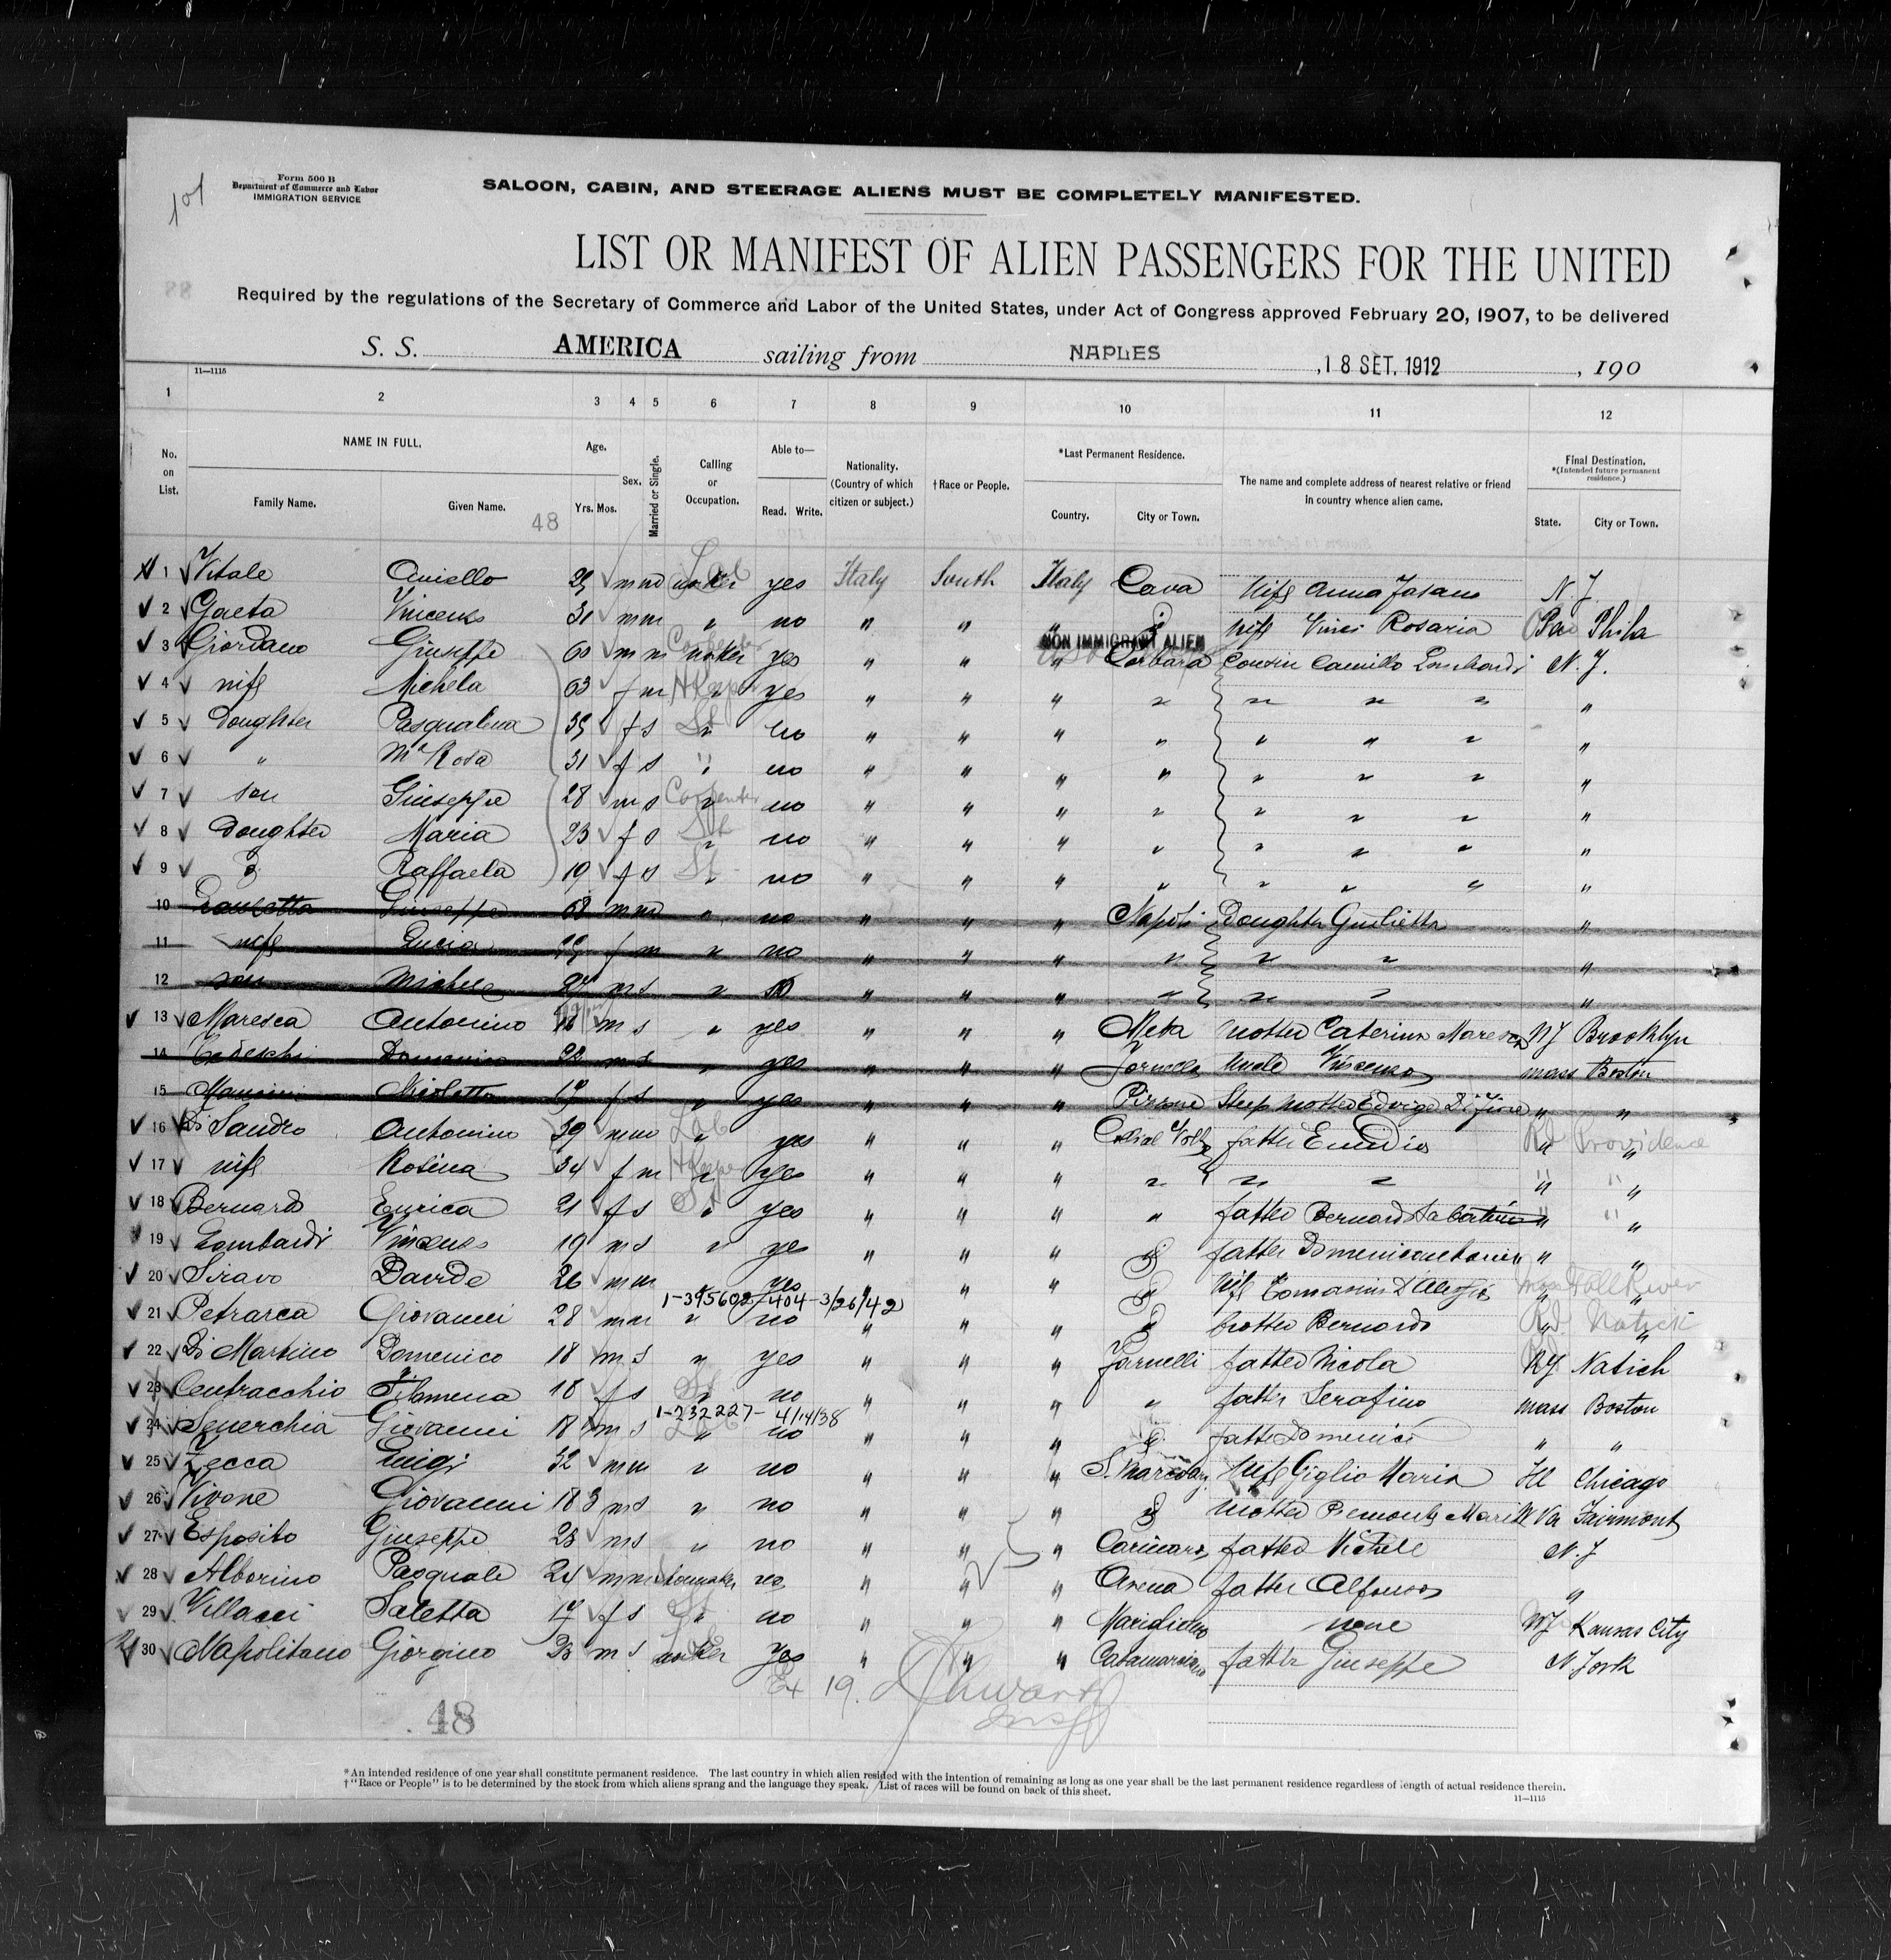 101
Form 500 B
Department of Commerce and Labor
IMMIGRATION SERVICE
SALOON, CABIN, AND STEERAGE ALIENS MUST BE COMPLETELY MANIFESTED.
LIST OR MANIFEST OF ALIEN PASSENGERS FOR THE UNITED
Required by the regulations of the Secretary of Commerce and Labor of the United States, under Act of Congress approved February 20, 1907, to be delivered
S. S. AMERICA sailing from NAPLES , 18 SET. 1912 , 190
11—1115
1 2 3 4 5 6 7 8 9 10 11 12
No. on List. NAME IN FULL. Age. Sex. Married or Single. Calling or Occupation. Able to— Nationality. (Country of which citizen or subject.) †Race or People. *Last Permanent Residence. The name and complete address of nearest relative or friend in country whence alien came. Final Destination. *(Intended future permanent residence.)
Family Name. Given Name. Yrs. Mos. Read. Write. Country. City or Town. State. City or Town.
48
1 Vitale Aniello m m yes Italy South Italy Cava Wife Anna Fasano N. J.
2 Gaeta Vincenzo 31 m m " no " " " Wife Vinci Rosaria Pa Phila
NON IMMIGRANT ALIEN
3 Giordano Giuseppe 60 m m yes " " " Corbara Cousin Camillo Lombardi N. J.
4 wife Michela 63 f m H Keeper yes " " " " " " " "
5 Doughter Pasqualina 39 f s " no " " " " " " " "
6 " Ma Rosa 31 f s " no " " " " " " " "
7 son Giuseppe 28 m s Carpenter no " " " " " " " "
8 Doughter Maria 23 f s " no " " " " " " " "
9 Raffaela 19 f s " no " " " " " " " "
10 Giuseppe 68 m m " no " " " Napoli Doughter Giulietta "
11 wife Lucia f m " no " " " " " " "
12 son Michele m s " " " " " " " "
13 Maresca Antonino 16 m s " yes " " " Meta Mother Caterina Maresca NY Brooklyn
14 Tedeschi Domenico 22 m s " yes " " " Uncle Vincenzo mass Boston
15 Mancini Nicoletta 17 f s " yes " " " Step Mother Edvige Di Fiore " "
16 Di Sandro Antonino 39 m m Lab yes " " " father Emidio RI Providence
17 wife Rosina 34 f m H Keeper yes " " " " " " " "
18 Bernardo Enrica 21 f s " yes " " " " father Bernardo Sabatino " "
19 Lombardi Vincenzo 19 m s " yes " " " father Domenicantonio " "
20 Siravo Davide 26 m m yes " " " Wife Tomasina D'Alessio mass Fall River
1-345602-404-3/26/42
21 Petrarca Giovanni 28 m m " no " " " brother Bernardo RI Natick
22 Di Martino Domenico 18 m s " yes " " " father Nicola Natick
23 Centracchio Filomena 18 f s " no " " " " father Serafino mass Boston
1-232227- 4/14/38
24 Senerchia Giovanni 18 m s " no " " " father Domenico " "
25 Zecca Luigi 32 m m " no " " " Wife Giglio Maria Ill Chicago
26 Vivone Giovanni 18 m s " no " " " Mother Piemonte Maria W Va Fairmont
27 Esposito Giuseppe 23 m s " no " " " Carinaro father Michele N. J
28 Alborino Pasquale 24 m m " " " Arena father Alfonso "
29 Villacci Saletta 17 f s " no " " " Marigliano none Kansas City
30 Napolitano Giorgino 23 m s yes " " " father Giuseppe N. York
Ex 19.
48
*An intended residence of one year shall constitute permanent residence. The last country in which alien resided with the intention of remaining as long as one year shall be the last permanent residence regardless of length of actual residence therein.
†"Race or People" is to be determined by the stock from which aliens sprang and the language they speak. List of races will be found on back of this sheet.
11—1115